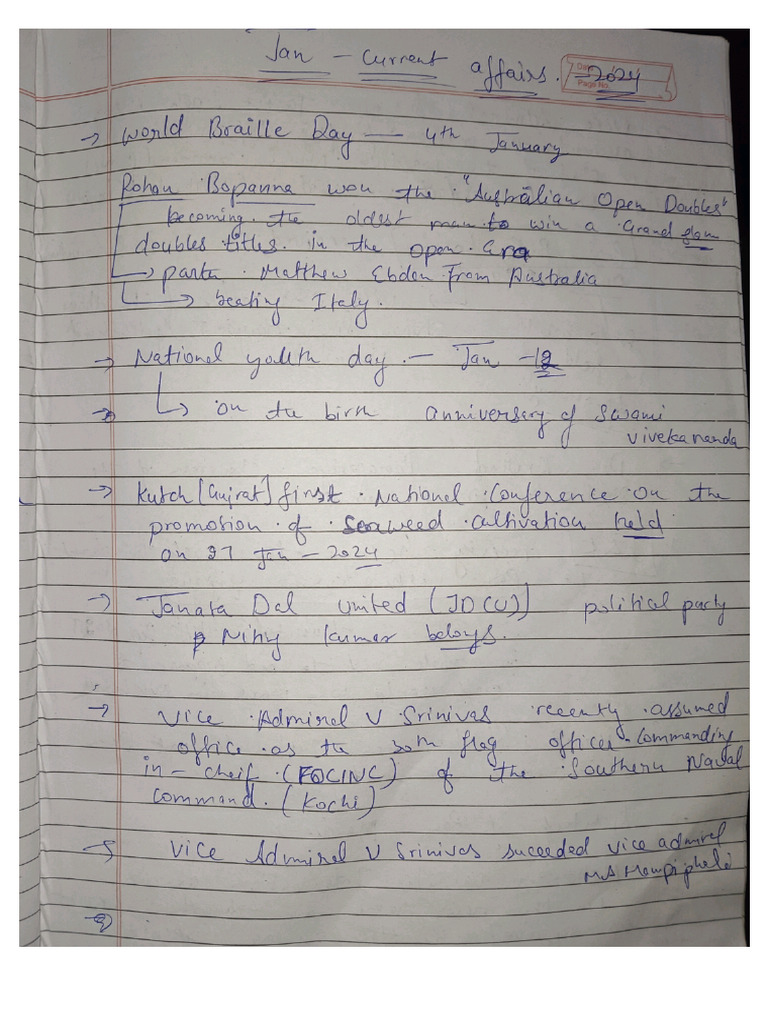 Jan - Current affairs. - 2024
Date
Page No.
→ World Braille Day — 4th January
Rohan Bopanna won the "Australian Open Doubles"
becoming the oldest man to win a Grand slam
doubles titles. in the open era
→ partn Matthew Ebden From Australia
→ beating Italy.
→ National youth day. — Jan - 12
→ on the birth anniversery of Swami
vivekananda
→ Kutch [Gujrat] first National Conference on the
promotion of Seaweed cultivation held
on 27 Jan - 2024
→ Janata Dal united (JD(U)) political party
Nitiy kumar beloys.
→ Vice Admirel V Srinivas recenty assumed
office as the 30th flag officer Commanding
in - cheif (FOCINC) of the Southern Naval
command. (Kochi)
→ Vice Admirel V Srinivas succeeded vice admirel
MA